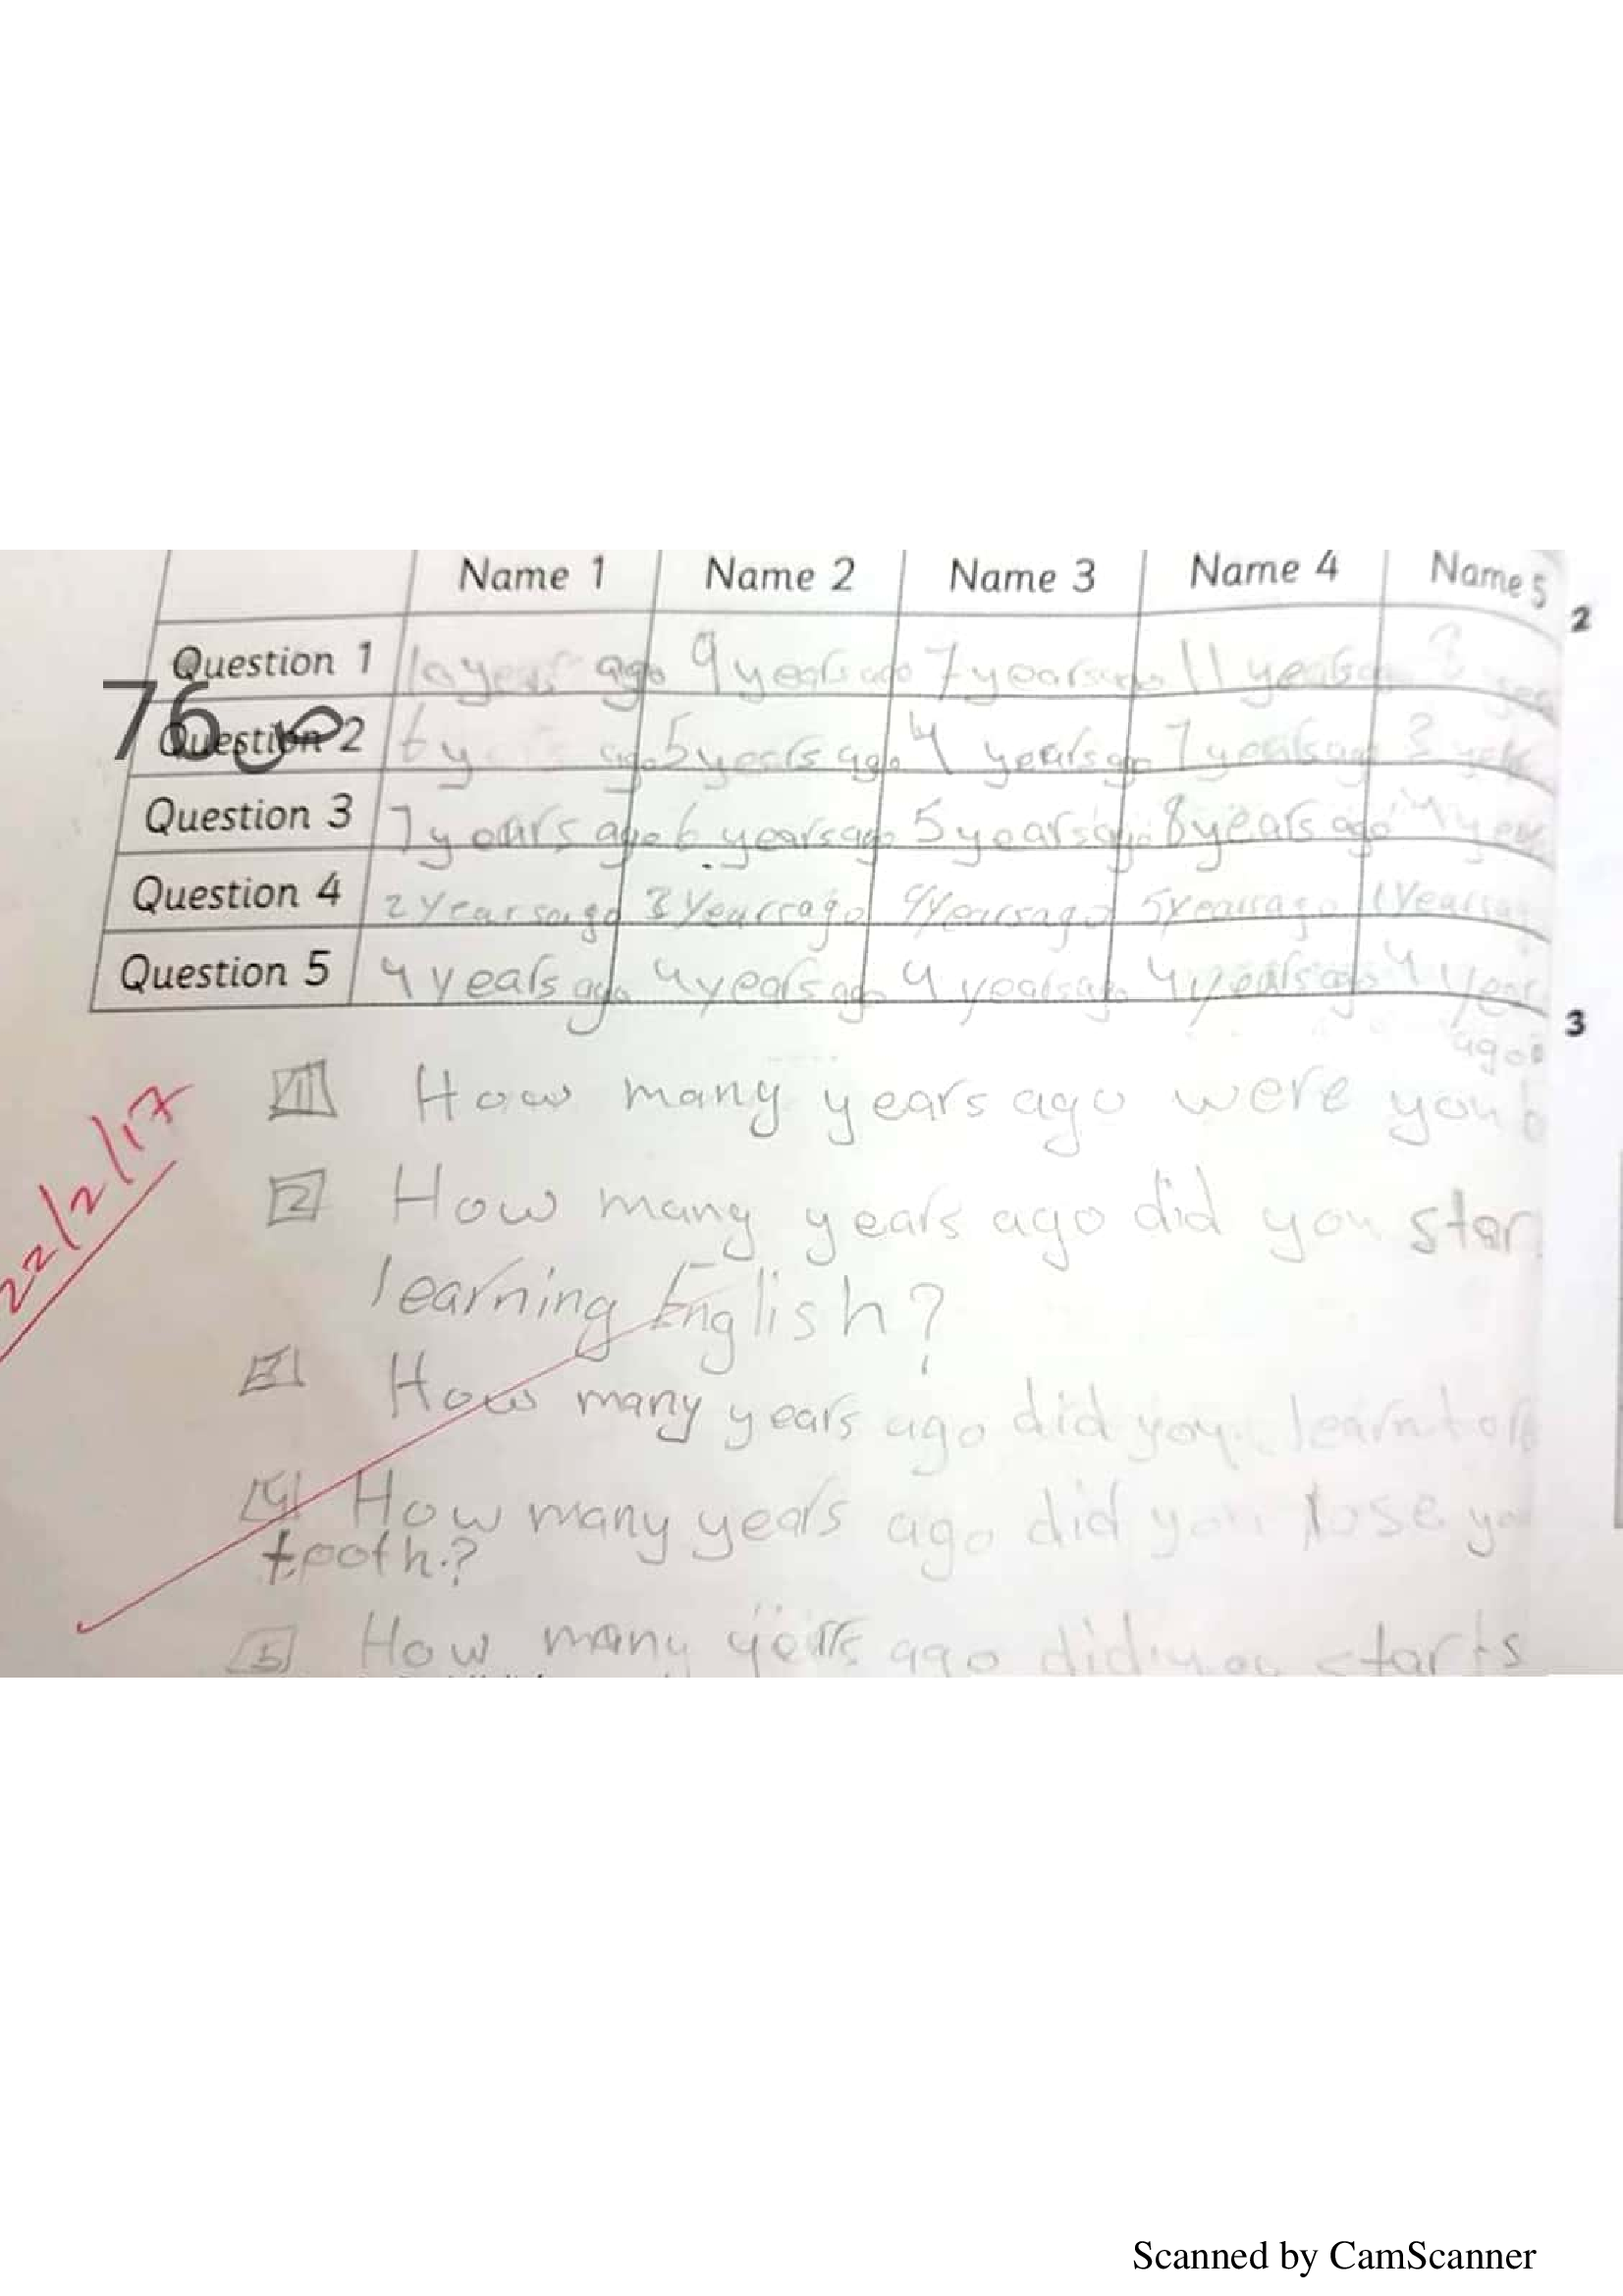 Name 1 Name 2 Name 3 Name 4 Name 5
2
Question 1 10 years ago 9 years ago 7 years ago 11 years
76 ص
Question 2 6 y ago 5 years ago 4 years ago 7 years ago 3
Question 3 7 years ago 6 years ago 5 years ago 8 years ago 4 year
Question 4 2 years ago 3 Years ago 4 Years ago 5 years ago 1 Years
Question 5 4 years ago 4 years ago 4 years ago 4 years ago 4 year
ago
3
22/2/17
1 How many years ago were you b
2 How many years ago did you star
learning English?
3 How many years ago did you learn to
4 How many years ago did you lose yo
tooth.?
5 How many years ago did you starts
Scanned by CamScanner